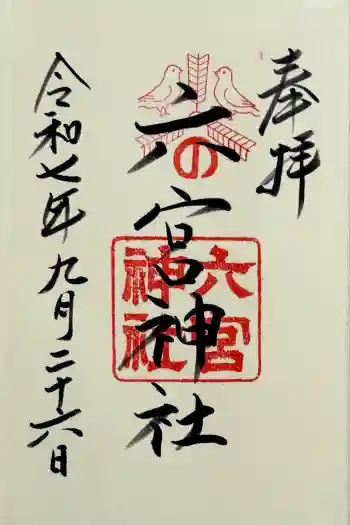 奉拝
六の宮神社
六宮
神社
令和七年九月二十六日